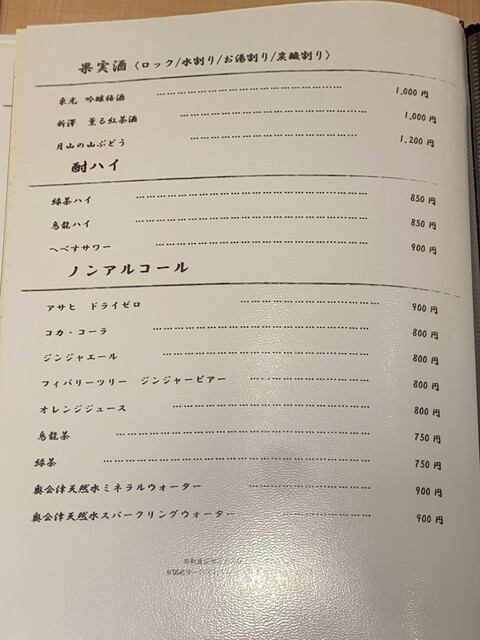 果実酒〈ロック/水割り/お湯割り/炭酸割り〉
東光 吟醸梅酒 ……………………………………… 1,000 円
新澤 薫る紅茶酒 ……………………………………… 1,000 円
月山の山ぶどう ……………………………… 1,200 円
酎ハイ
緑茶ハイ ……………………………………………… 850 円
烏龍ハイ ……………………………………………… 850 円
へべすサワー ……………………………………… 900 円
ノンアルコール
アサヒ ドライゼロ ……………………………… 900 円
コカ・コーラ ……………………………………… 800 円
ジンジャエール ……………………………………… 800 円
フィバリーツリー ジンジャービアー ……………………… 800 円
オレンジジュース ……………………………………… 800 円
烏龍茶 ……………………………………………… 750 円
緑茶 ………………………………………………… 750 円
奥会津天然水ミネラルウォーター ……………………… 900 円
奥会津天然水スパークリングウォーター ……………………… 900 円